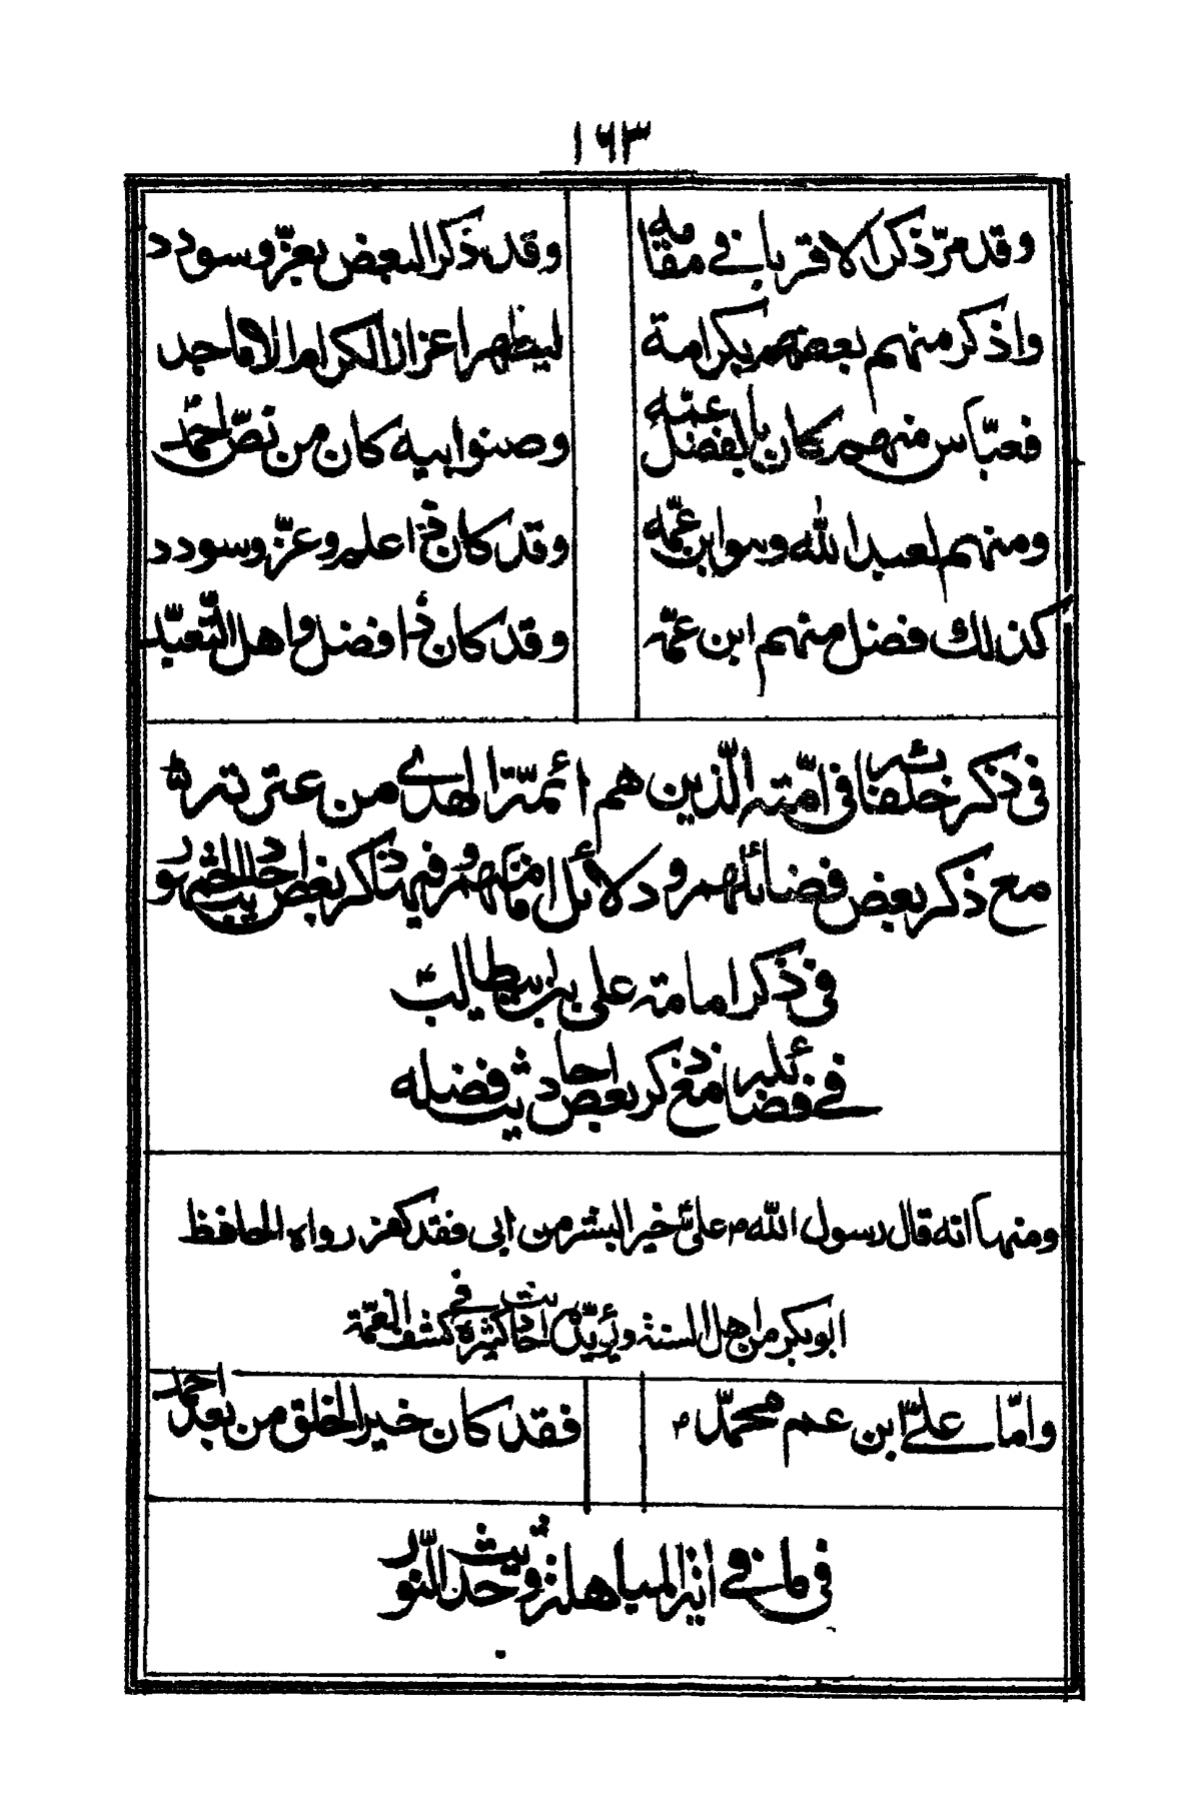 ١٦٣
وقد مرّ ذكر الاقرباء في مقامه وقد ذكر البعض بعزّ وسودد
واذكر منهم بعضهم بكرامة ليظهر اعزاز الكرام الاماجد
فعبّاس منهم كان بالفضل عمّه وصنو ابيه كان من نصّ احمد
ومنهم لعبد الله وهو ابن عمّه وقد كان فى اعلم وعزّ وسودد
كذلك فضل منهم ابن عمّه وقد كان ذا فضل واهل التّعبّد
فى ذكر خلفائه فى امّته الّذين هم ائمّة الهدى من عترته
مع ذكر بعض فضائلهم ودلائل امامتهم وفيها ذكر بعض احاديث الخم نور
فى ذكر امامة على بن ابيطالب
في فضائله مع ذكر بعض احاديث فضله
ومنها انه قال رسول الله ص علىّ خير البشر من ابى فقد كفر رواه الحافظ
ابو بكر من اهل السنة ويؤيّده احاديث كثيرة في كشف الغمّة
وامّا علىّ ابن عم محمّد ص فقد كان خير الخلق من بعد احمد
فى ما في اية المباهلة وحديث النّور